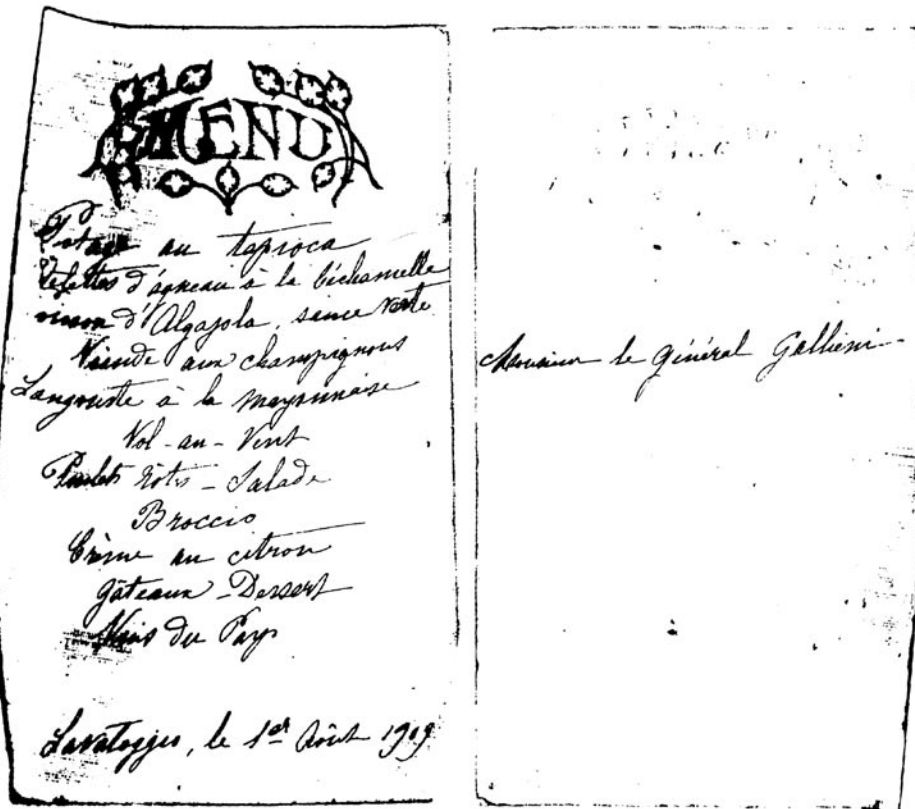 MENU
Potage au tapioca
d'agneau à la béchamelle
d'Algajola, sauce verte
Viande aux champignons
Langouste à la mayonnaise
Vol-au-Vent
Poulets rôtis - Salade
Broccio
Crème au citron
Gâteaux - Dessert
Vins du Pays
Lavatoggio, le 1er Août 1909
Monsieur le Général Gallieni